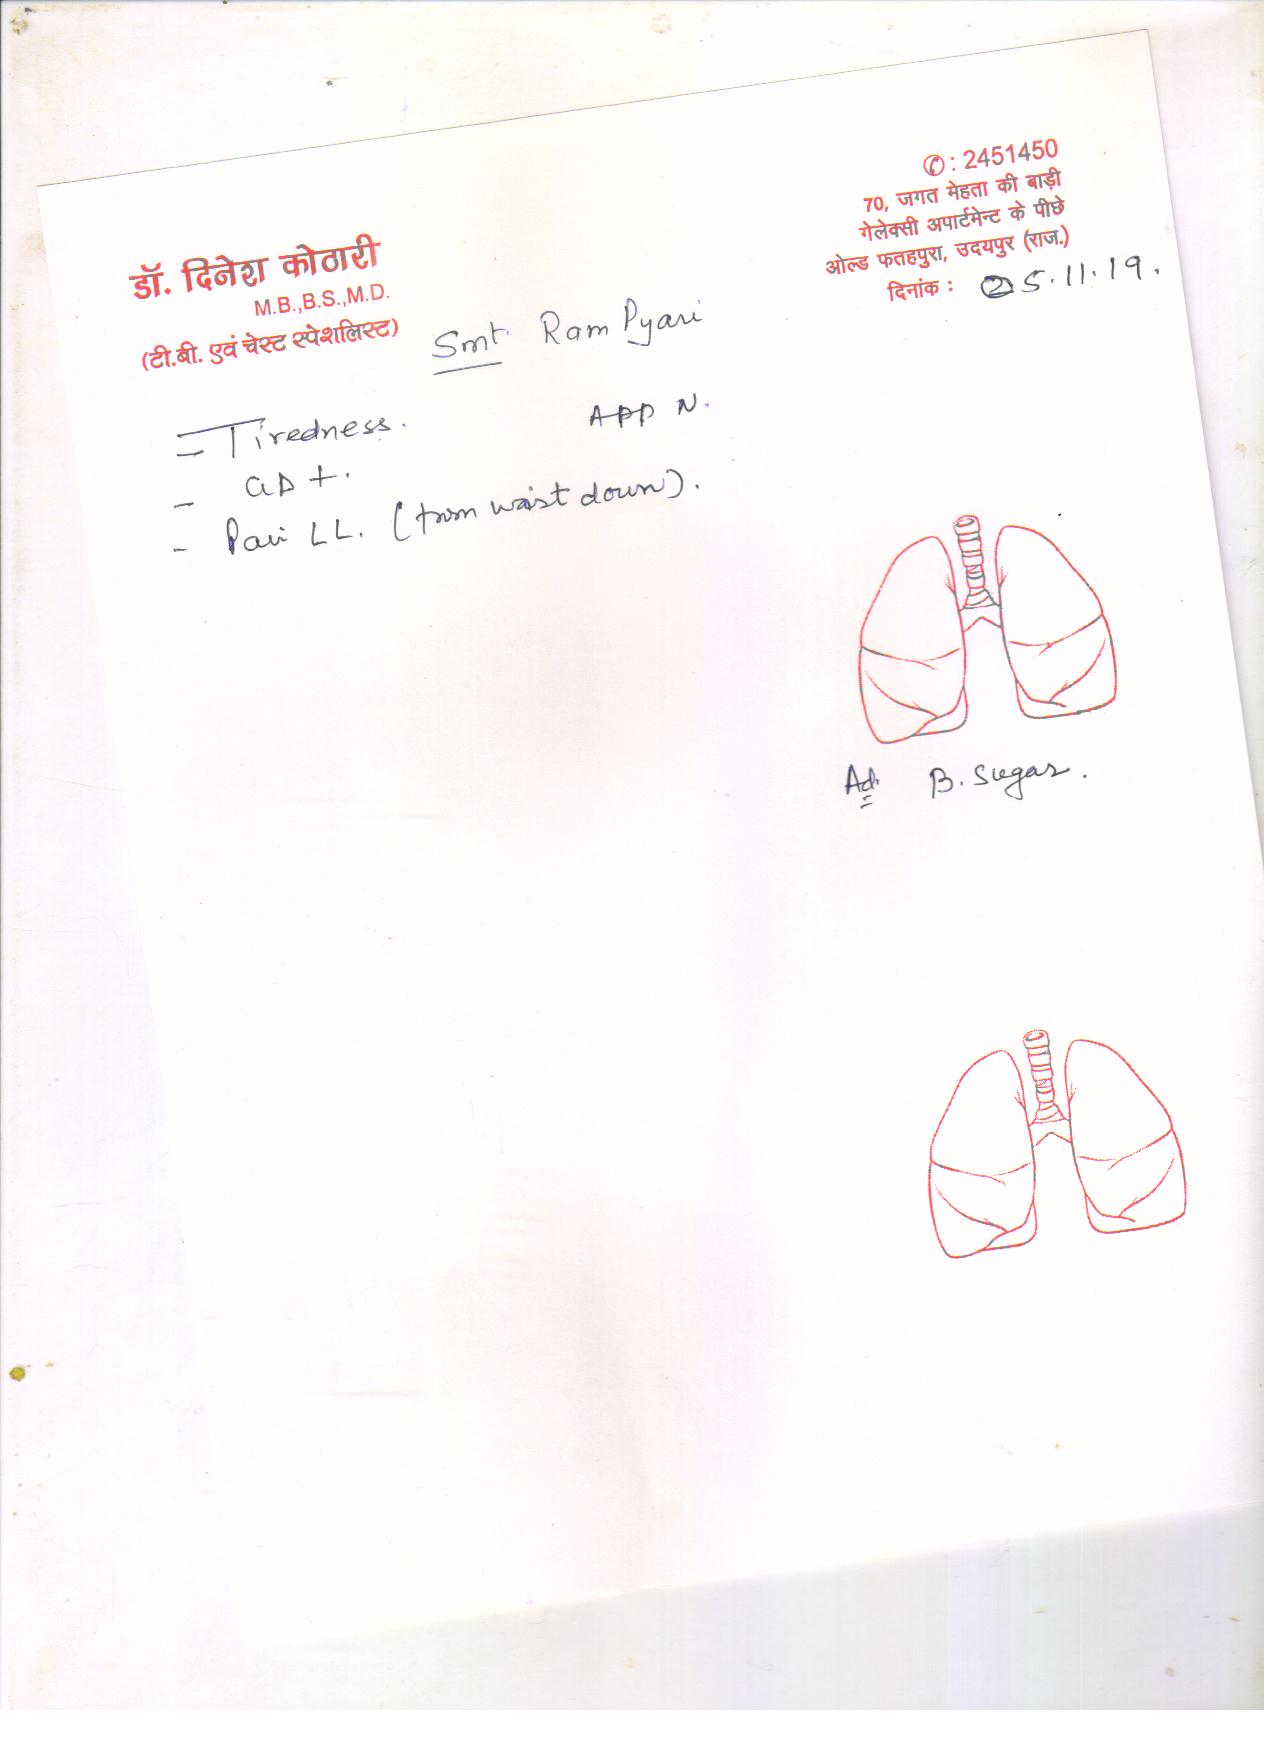 ✆: 2451450
70, जगत मेहता की बाड़ी
गेलेक्सी अपार्टमेन्ट के पीछे
ओल्ड फतहपुरा, उदयपुर (राज.)
दिनांक : 25.11.19.
डॉ. दिनेश कोठारी
M.B.,B.S.,M.D.
(टी.बी. एवं चेस्ट स्पेशलिस्ट)
Smt. Ram Pyari
- Tiredness.
APP N.
- GD +.
- Pain LL. (from waist down).
Ad. B. Sugar.